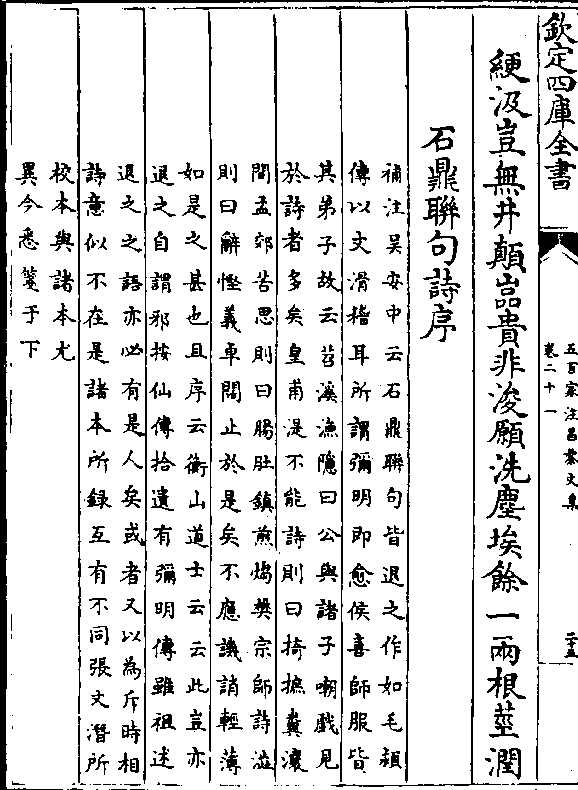 欽定四庫全書
五百家注昌黎文集
卷二十一
二十五
綆汲豈無井顛崖貴非浚願洗塵埃餘一兩根莖潤
石鼎聯句詩序
補注吴安中云石鼎聯句皆退之作如毛穎
傳以文滑稽耳所謂彌明即愈侯喜師服皆
其弟子故云苕溪漁隱曰公與諸子嘲戲見
於詩者多矣皇甫湜不能詩則曰掎摭糞壤
間孟郊苦思則曰腸肚鎮煎煼樊宗師詩澁
則曰辭慳義卓闊止於是矣不應譏誚輕薄
如是之甚也且序云衡山道士云云此豈亦
退之自謂邪按仙傳拾遺有彌明傳雖祖述
退之之語亦必有是人矣或者又以為斥時相
詩意似不在是諸本所録互有不同張文潛所
校本與諸本尤
異今悉箋于下